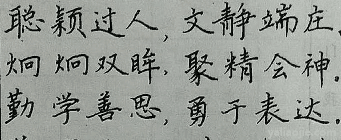 聪颖过人，文静端庄，
炯炯双眸，聚精会神。
勤学善思，勇于表达。